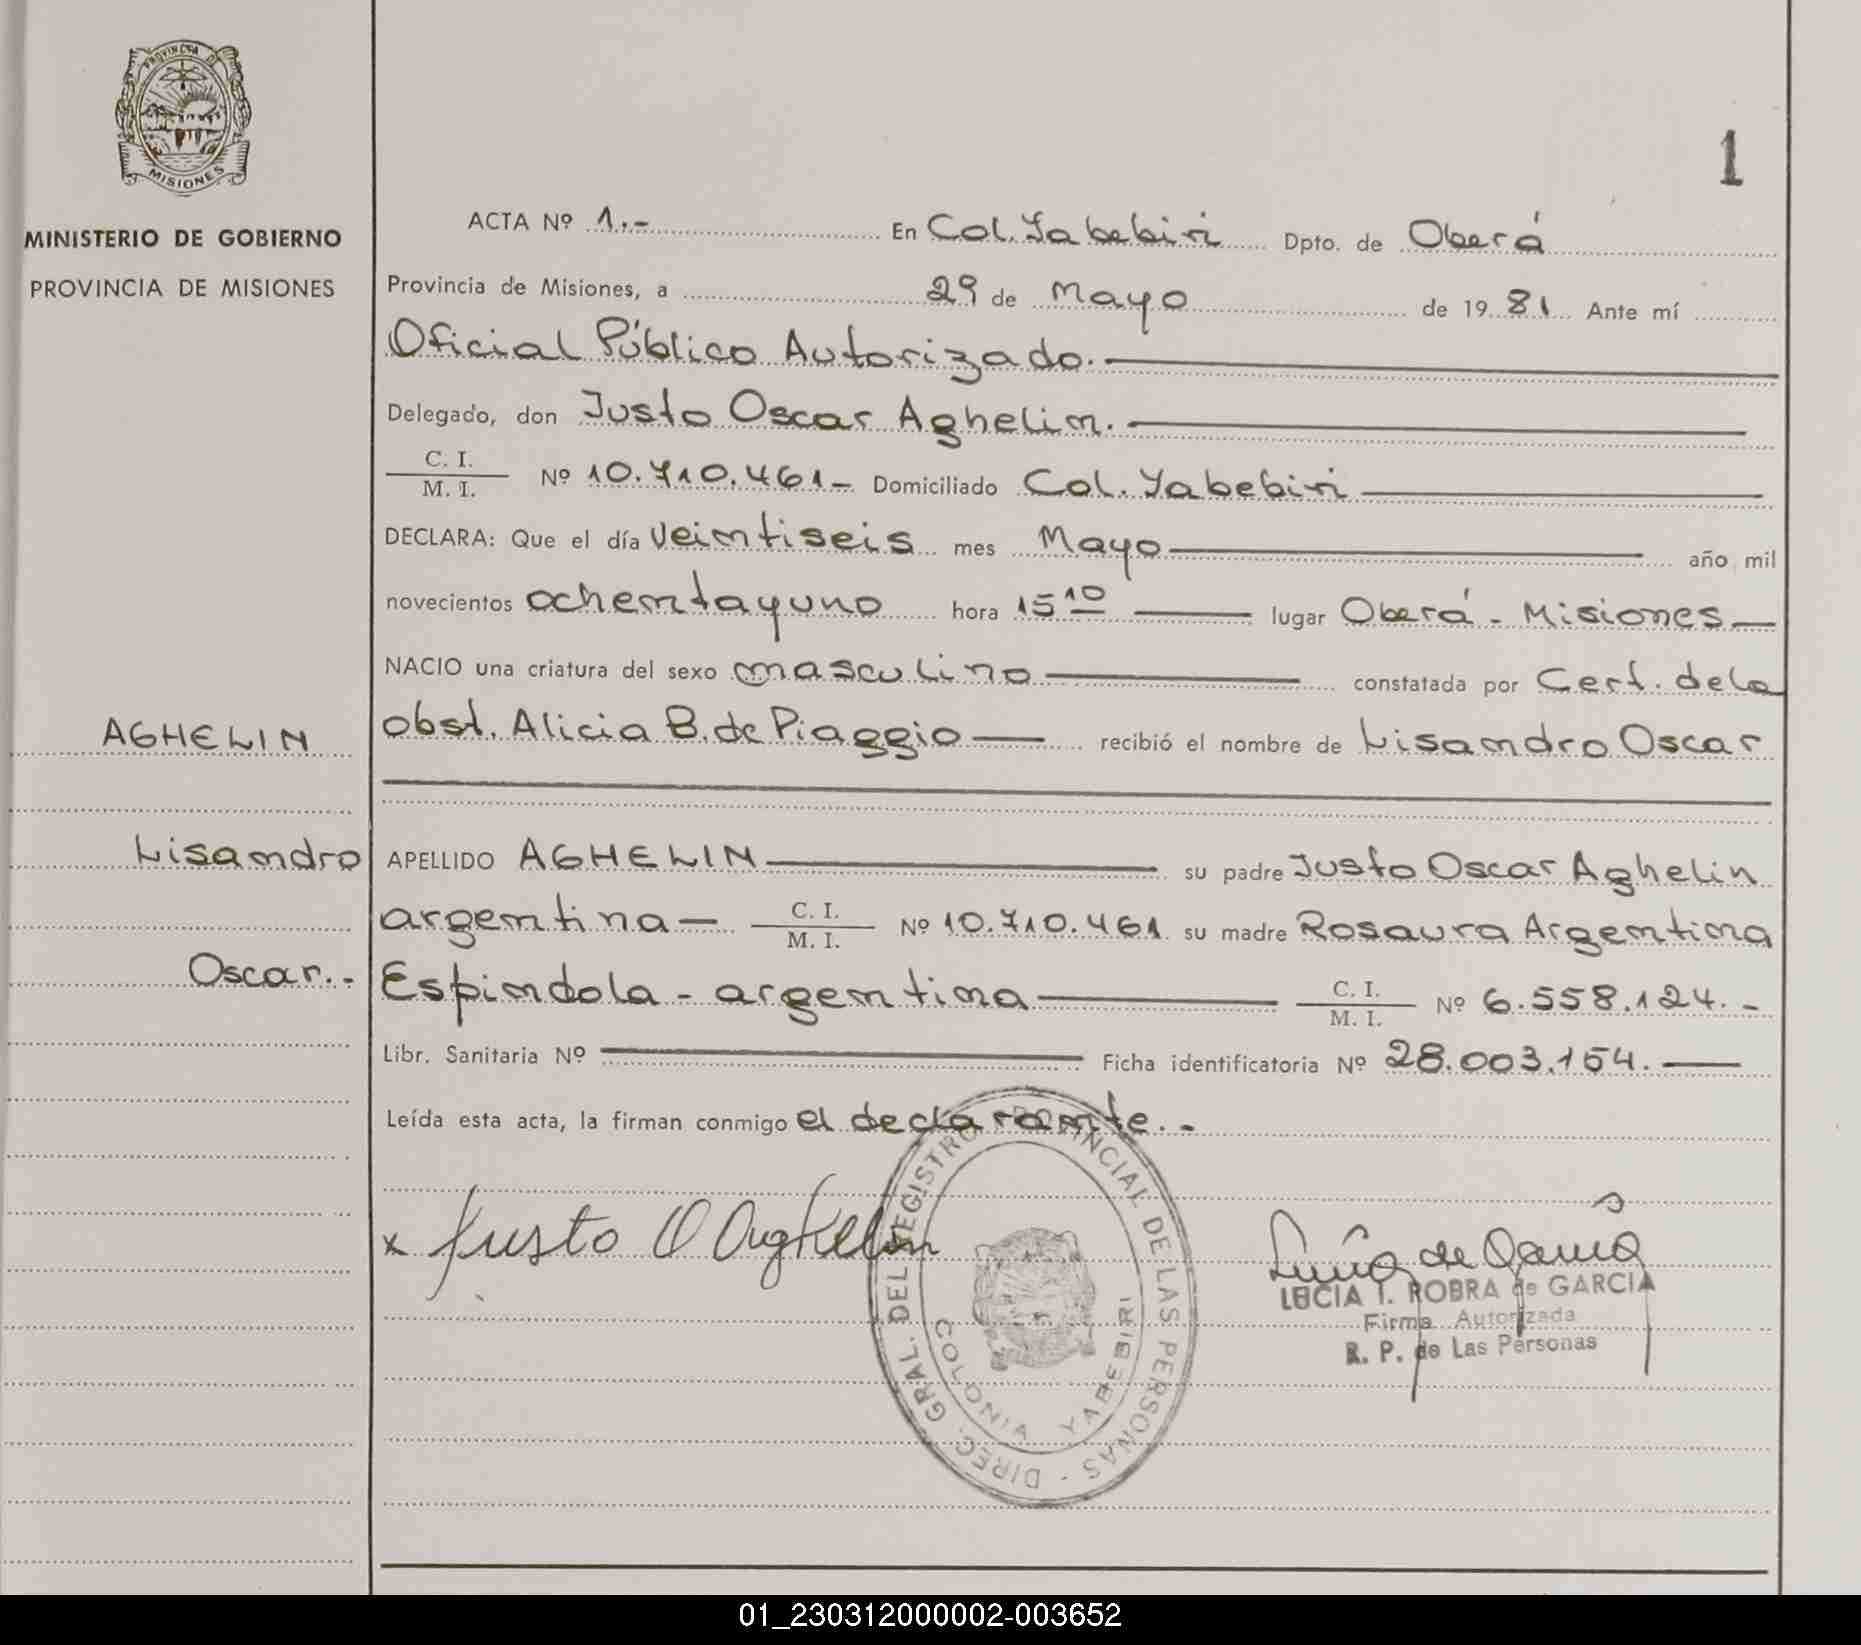 PROVINCIA DE
MISIONES
MINISTERIO DE GOBIERNO
PROVINCIA DE MISIONES
1
ACTA Nº 1.- En Col. Yabebiri Dpto. de Oberá
Provincia de Misiones, a 29 de Mayo de 1981 Ante mí
Oficial Público Autorizado.
Delegado, don Justo Oscar Aghelin.
C. I.
M. I. Nº 10.710.461- Domiciliado Col. Yabebiri
DECLARA: Que el día veintiseis mes Mayo año mil
novecientos ochentayuno hora 15 10 lugar Oberá - Misiones
NACIO una criatura del sexo masculino constatada por Cert. de la
AGHELIN
obst. Alicia B. de Piaggio recibió el nombre de Lisandro Oscar
Lisandro
APELLIDO AGHELIN su padre Justo Oscar Aghelin
argentina — C. I.
M. I. Nº 10.710.461 su madre Rosaura Argentina
Oscar.-
Espindola - argentina C. I.
M. I. Nº 6.558.124.-
Libr. Sanitaria Nº Ficha identificatoria Nº 28.003.154.
Leída esta acta, la firman conmigo el declarante.-
x Justo O Aghelin
DIREC. GRAL. DEL REGISTRO PROVINCIAL DE LAS PERSONAS -
COLONIA YABEBIRI
Lucía de García
LUCIA I. ROBRA de GARCIA
Firma Autorizada
R. P. de Las Personas
01_230312000002-003652